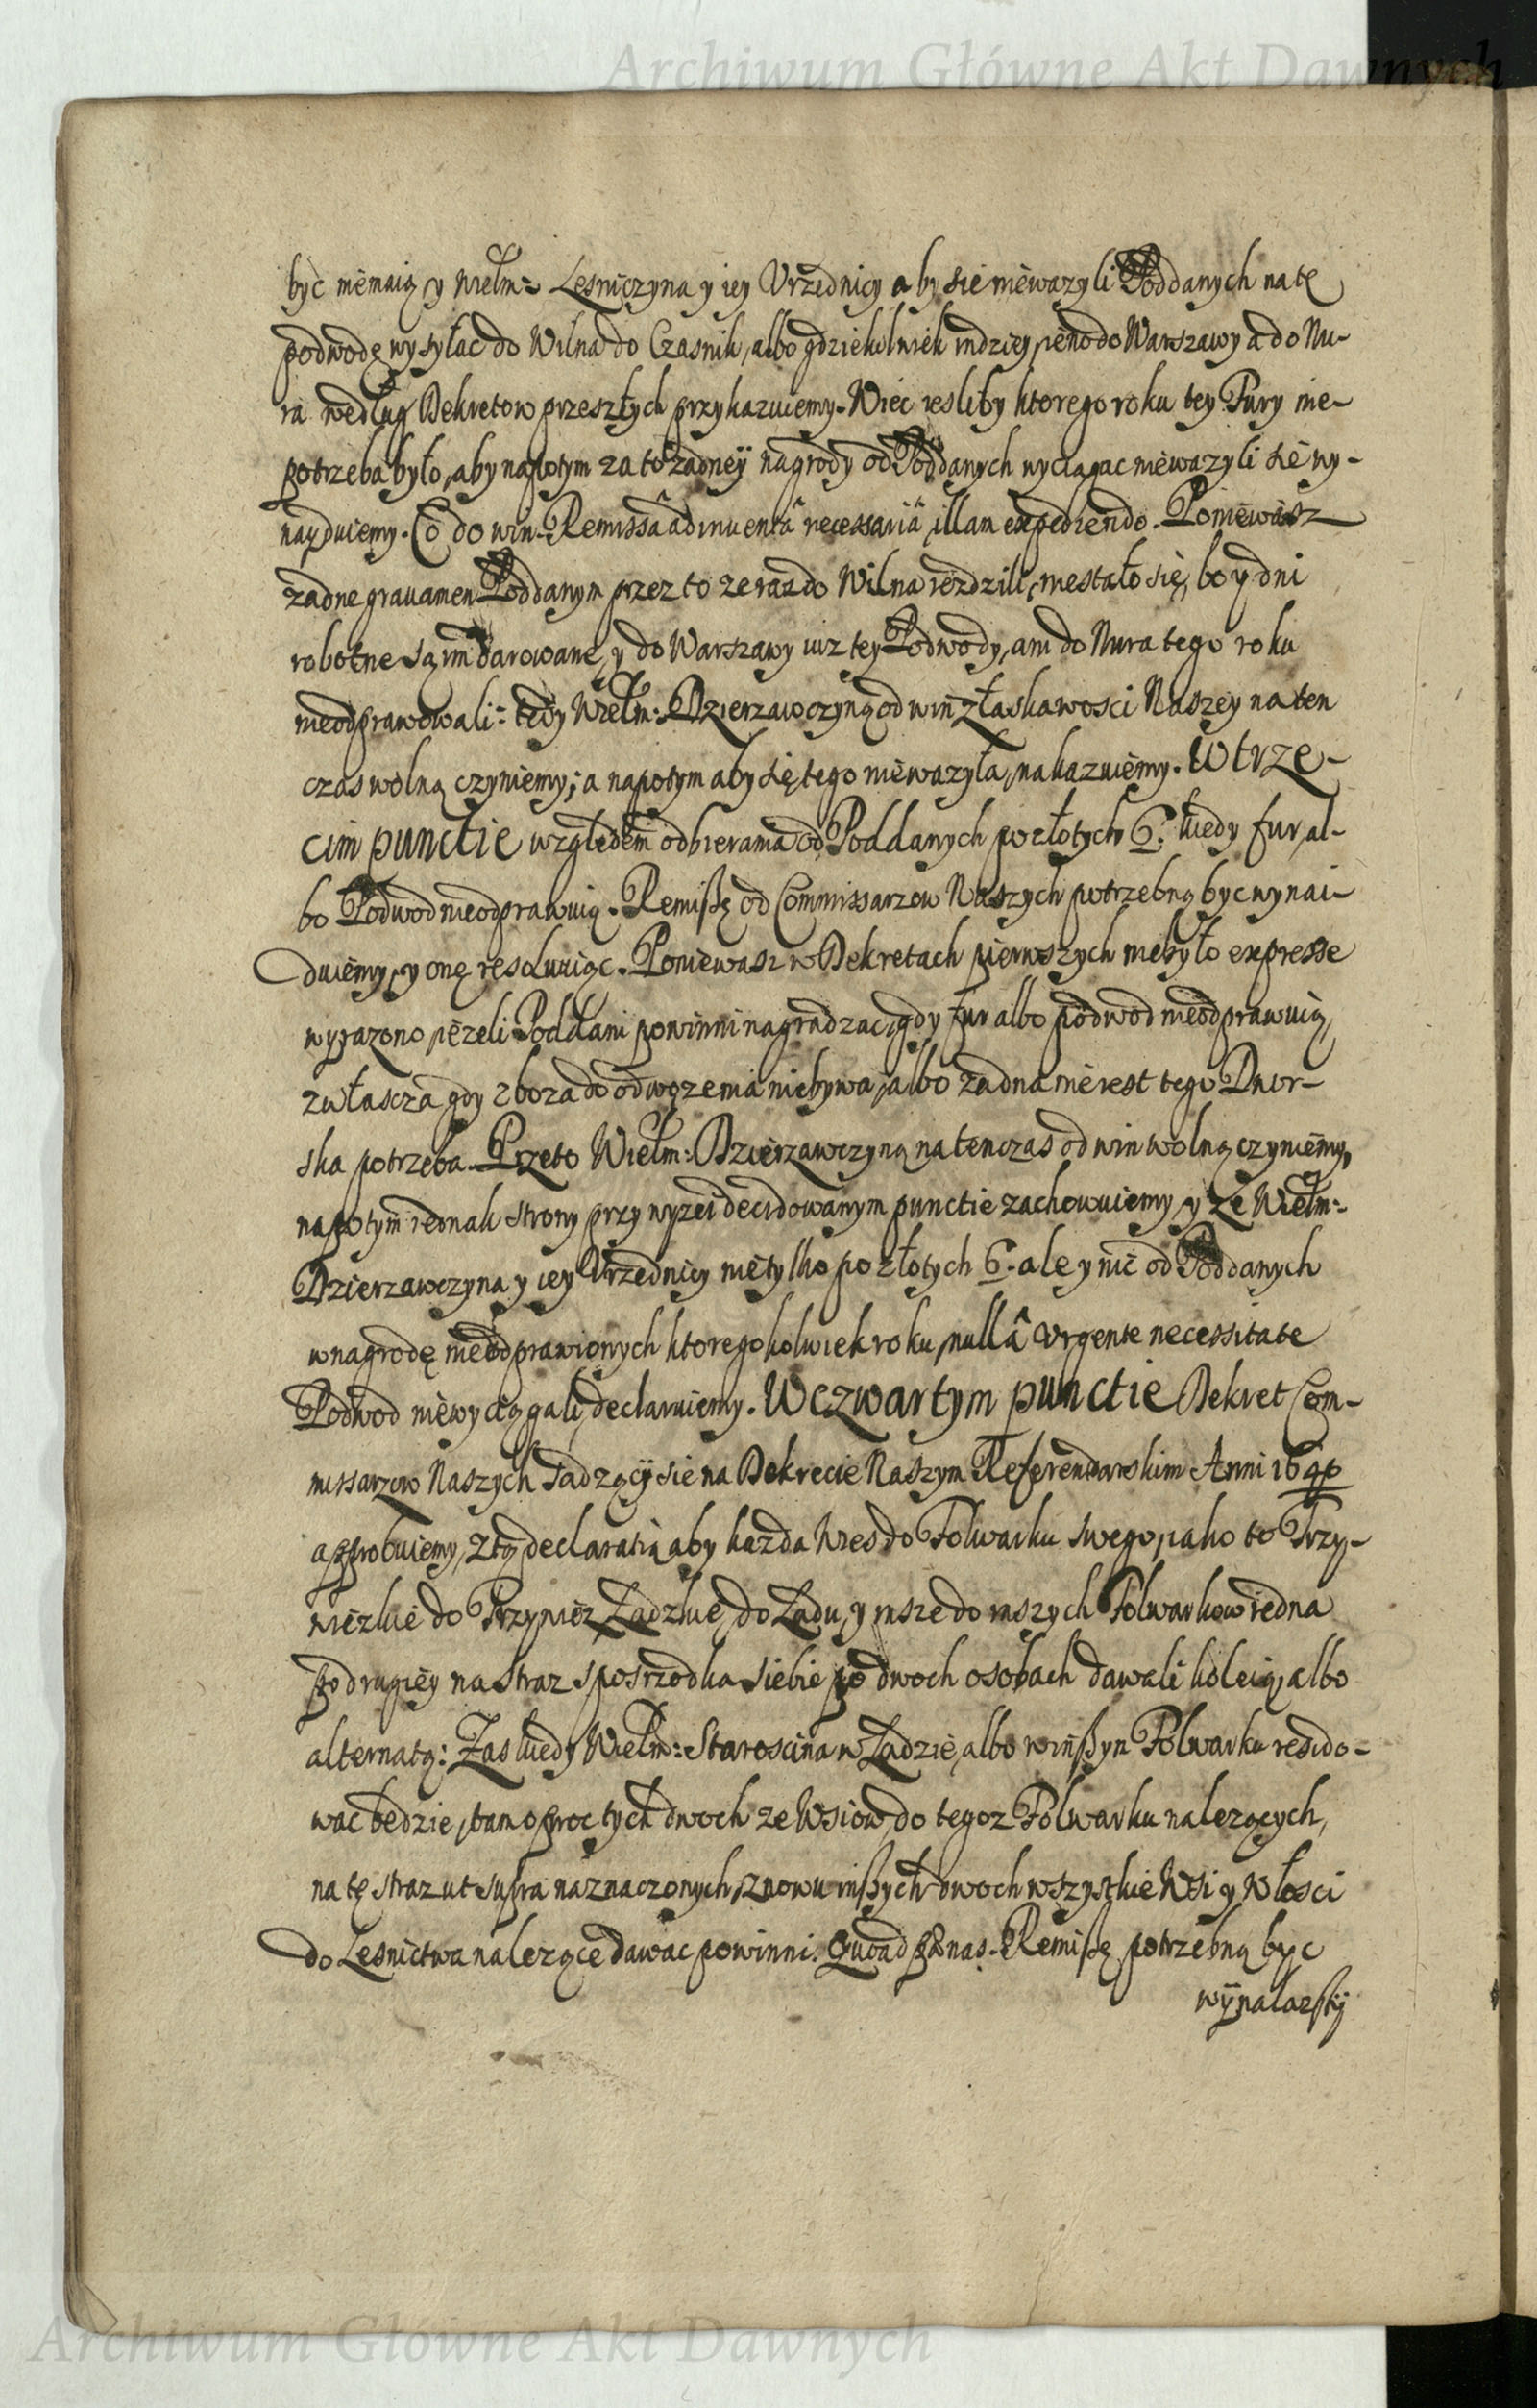 Archiwum Główne Akt Dawnych
być niemaią y Wielm: Lesniczyna y iey Vrzędnicy aby się nieważyli Poddanych na tę
podwodę wysyłac do Wilna do Czasnik, albo gdziekolwiek indziey, ieno do Warszawy a do Nu-
ra według Dekretow przeszłych przykazuiemy. Wiec iesliby ktorego roku tey Fury nie-
potrzeba było, aby napotym za to żadney nagrody od Poddanych wyciągac nieważyli się wy-
nayduiemy. Co do win. Remissâ adinventâ necessariâ, illam expediendo. Poniewasz
zadne gravamen Poddanym przez to ze raz do Wilna iezdzili, niestało się, bo y dni
robotne są im darowane, y do Warszawy iuz tey Podwody, ani do Nura tego roku
nieodprawowali: tedy Wielm: Dzierzawczynę od win z łaskawosci Naszey na ten
czas wolną czyniemy; a napotym aby się tego nieważyła, nakazuiemy. W trze-
cim punctie względem odbierania od Poddanych po złotych 6. kiedy fur, al-
bo Podwod nieodprawuią. Remissę od Commissarzow Naszych potrzebną byc wynai-
duiemy, y onę resolvuiąc. Poniewasz w Dekretach pierwszych niebyło expresse
wyrazono ieżeli Poddani powinni nagradzac, gdy fur albo podwod nieodprawuią,
zwłascza gdy zboza do odwozenia niebywa, albo żadna nie iest tego Dwor-
ska potrzeba. Przeto Wielm: Dzierzawczynę na tenczas od win wolną czyniemy,
napotym iednak strony przy wyzei decidowanym punctie zachowuiemy, y że Wielm:
Dzierzawczyna y iey Vrzędnicy nietylko po złotych 6. ale y nic od Poddanych
w nagrodę nieodprawionych ktoregokolwiek roku, nullâ vrgente necessitate
Podwod niewyciągali, declaruiemy. W czwartym punctie Dekret Com-
missarzow Naszych sadzący się na Dekrecie Naszym Referendarskim Anni
approbuiemy, z tą declaratią aby kazda Wies do Folwarku swego, iako to Przy-
do Ladu, y insze do inszych Folwarkow iedna
po drugiey na straz sposrzodka siebie po dwoch osobach dawali koleią, albo
alternatą: Zas kiedy Wielm: Staroscina w Ladzie, albo w inszym Folwarku resido-
wac będzie, tam oproc tych dwoch ze Wsiow do tegoz Folwarku nalezących,
na tę straz ut supra naznaczonych, znowu inszych dwoch wszystkie Wsi y Włosci
do Lesnictwa nalezące dawac powinni. Quoad pœnas. Remissę potrzebną byc
wynalazszy
Archiwum Główne Akt Dawnych